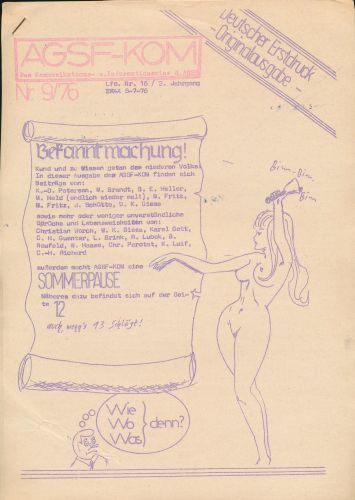 AGSF-KOM
Das Kommunikations- u. Informationsmedium d. AGSF
Nr. 9/76
Lfd. Nr. 16 / 2. Jahrgang
5-7-76
Deutscher Erstdruck
-Originalausgabe-
Bekanntmachung!
Kund und zu Wissen getan dem niederen Volke!
In dieser Ausgabe des AGSF-KOM finden sich
Beiträge von:
K.-D. Petersen, W. Brandt, G. E. Heller,
W. Held (endlich wieder mal!), W. Fritz,
M. Fritz, J. Schütte, U. K. Giese
sowie mehr oder weniger unverständliche
Sprüche und Lebensweisheiten von:
Christian Worch, W. K. Giesa, Karel Gott,
C. H. Guenter, L. Brink, R. Lubek, B.
Neufeld, W. Haase, Chr. Parotat, K. Luif,
C.-H. Richard
außerdem macht AGSF-KOM eine
SOMMERPAUSE
Näheres dazu befindet sich auf der Sei-
te 12
auch, wenn's 13 schlägt!
Bimm-Bim,
Bim
Wie
Wo
Was
denn?